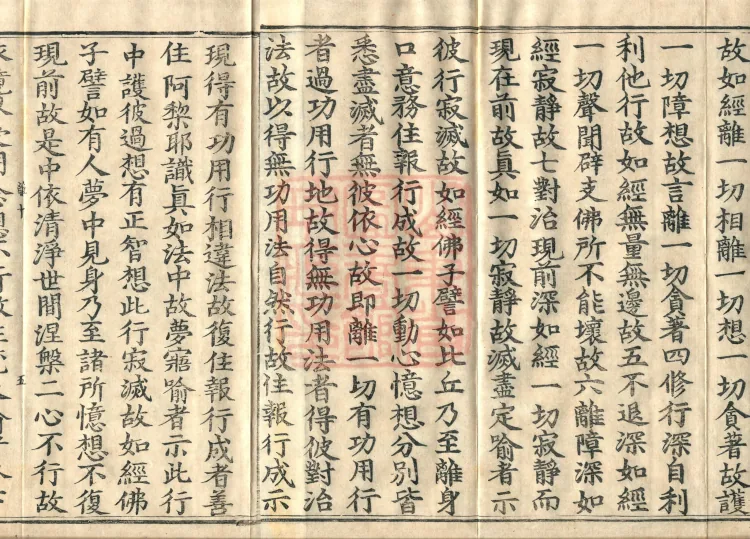 故如經離一切相離一切想一切貪著故護
一切障想故言離一切貪著四修行深自利
利他行故如經無量無邊故五不退深如經
一切聲聞辟支佛所不能壞故六離障深如
經寂靜故七對治現前深如經一切寂靜而
現在前故真如一切寂靜故滅盡定喻者示
彼行寂滅故如經佛子譬如比丘乃至離身
口意務住報行成故一切動心憶想分別皆
悉盡滅者無彼依心故即離一切有功用行
者過功用行地故得無功用法者得彼對治
法故以得無功用法自然行故住報行成示
現得有功用行相違法故復住報行成者善
住阿黎耶識真如法中故夢寤喻者示此行
中護彼過想有正智想此行寂滅故如經佛
子譬如有人夢中見身乃至諸所憶想不復
現前故是中依清淨世間涅槃二心不行故
十
五